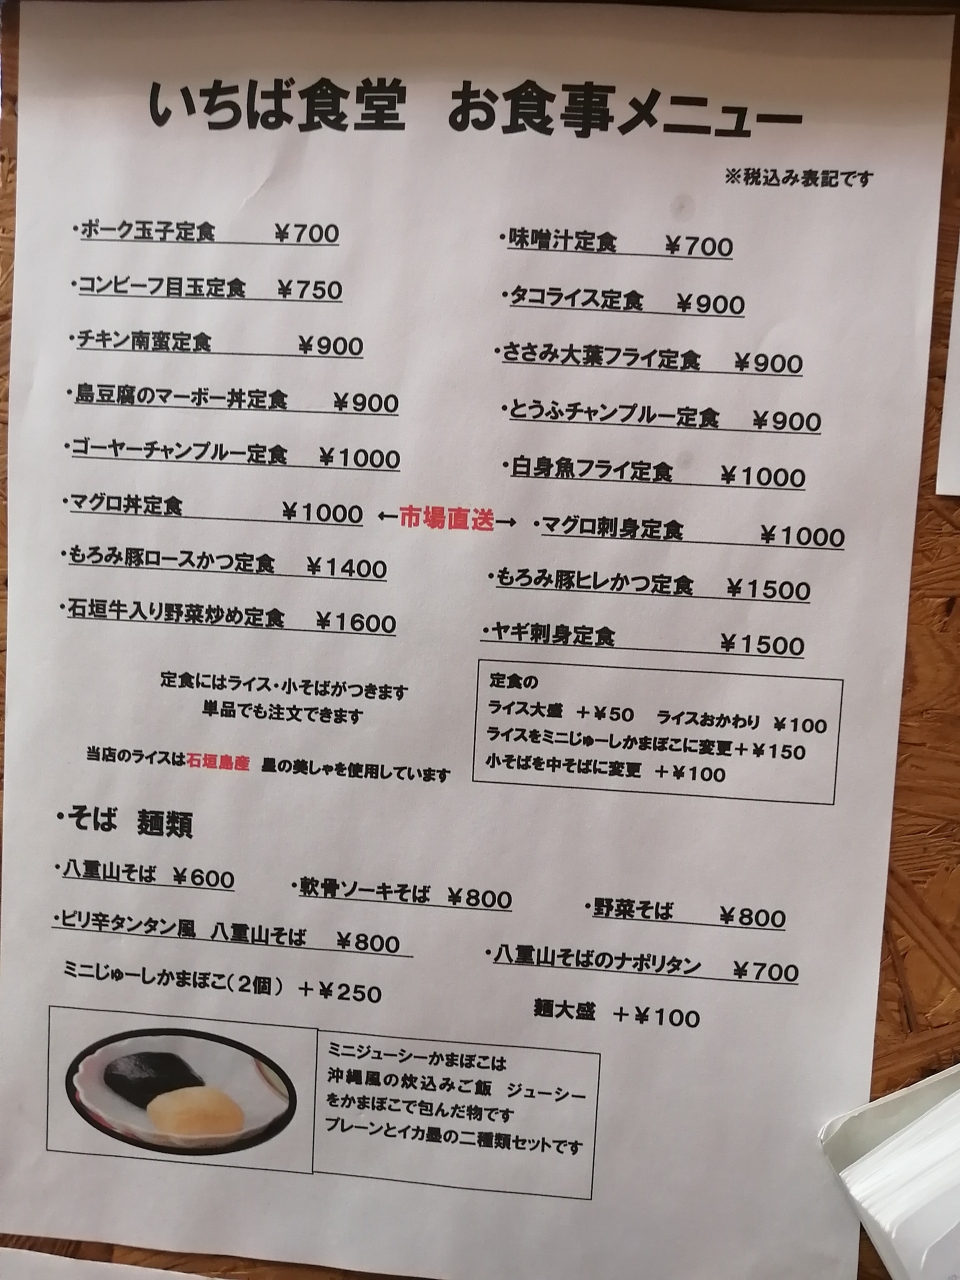 いちば食堂 お食事メニュー
※税込み表記です
・ポーク玉子定食 ¥700
・コンビーフ目玉定食 ¥750
・チキン南蛮定食 ¥900
・島豆腐のマーボー丼定食 ¥900
・ゴーヤーチャンプルー定食 ¥1000
・マグロ丼定食 ¥1000 ←市場直送→ ・マグロ刺身定食 ¥1000
・もろみ豚ロースかつ定食 ¥1400
・石垣牛入り野菜炒め定食 ¥1600
・味噌汁定食 ¥700
・タコライス定食 ¥900
・ささみ大葉フライ定食 ¥900
・とうふチャンプルー定食 ¥900
・白身魚フライ定食 ¥1000
・もろみ豚ヒレかつ定食 ¥1500
・ヤギ刺身定食 ¥1500
定食にはライス・小そばがつきます
単品でも注文できます
当店のライスは石垣島産 星の美しゃを使用しています
定食の
ライス大盛 +¥50 ライスおかわり ¥100
ライスをミニじゅーしかまぼこに変更+¥150
小そばを中そばに変更 +¥100
・そば 麺類
・八重山そば ¥600
・軟骨ソーキそば ¥800
・野菜そば ¥800
・ピリ辛タンタン風 八重山そば ¥800
・八重山そばのナポリタン ¥700
ミニじゅーしかまぼこ(2個) +¥250
麺大盛 +¥100
ミニジューシーかまぼこは
沖縄風の炊込みご飯 ジューシー
をかまぼこで包んだ物です
プレーンとイカ墨の二種類セットです